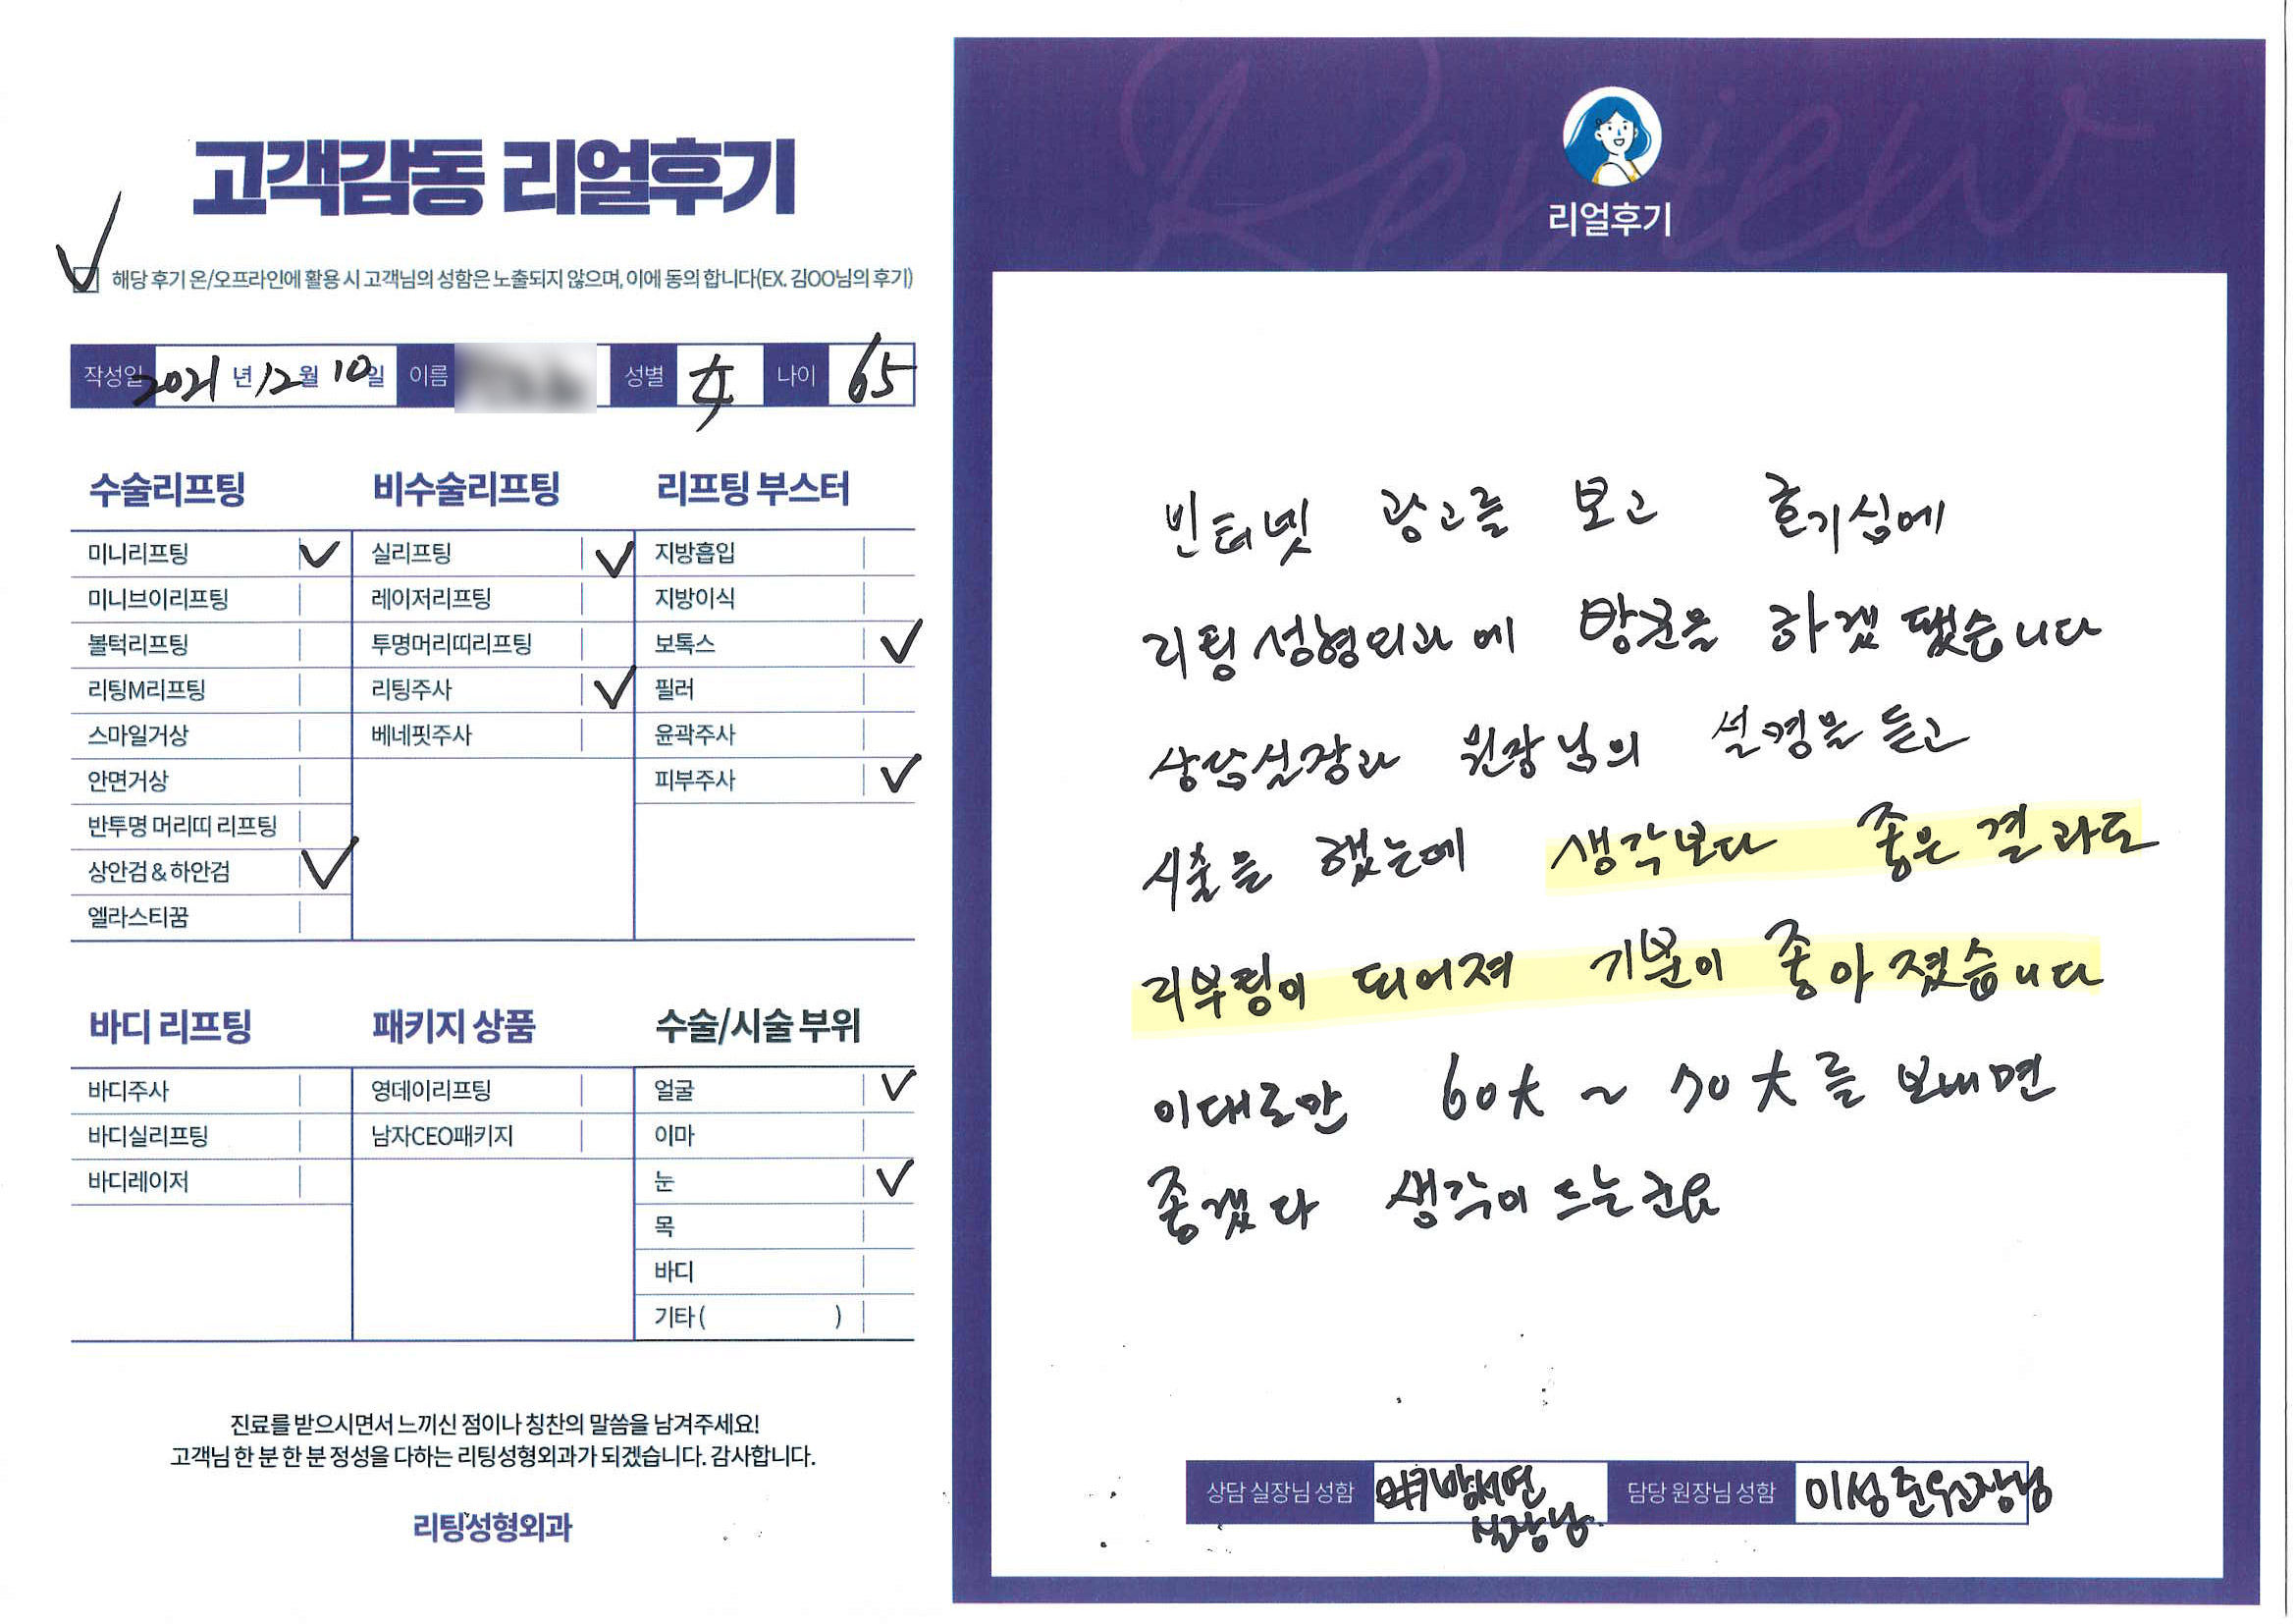 고객감동 리얼후기
해당 후기 온/오프라인에 활용 시 고객님의 성함은 노출되지 않으며, 이에 동의 합니다(EX. 김OO님의 후기)
작성일 2021 년 12 월 10 일 이름 성별 女 나이 65
수술리프팅
미니리프팅
미니브이리프팅
볼턱리프팅
리팅M리프팅
스마일거상
안면거상
반투명 머리띠 리프팅
상안검 & 하안검
엘라스티꿈
비수술리프팅
실리프팅
레이저리프팅
투명머리띠리프팅
리팅주사
베네핏주사
리프팅 부스터
지방흡입
지방이식
보톡스
필러
윤곽주사
피부주사
바디 리프팅
바디주사
바디실리프팅
바디레이저
패키지 상품
영데이리프팅
남자CEO패키지
수술/시술 부위
얼굴
이마
눈
목
바디
기타 ( )
진료를 받으시면서 느끼신 점이나 칭찬의 말씀을 남겨주세요!
고객님 한 분 한 분 정성을 다하는 리팅성형외과가 되겠습니다. 감사합니다.
리팅성형외과
Review
리얼후기
인터넷 광고를 보고 호기심에
리팅성형외과에 방문을 하겠 됐습니다
상담실장과 원장님의 설명을 듣고
시술을 했는데 생각보다 좋은 결과로
리부팅이 되어져 기분이 좋아졌습니다
이대로만 60大 ~ 70大를 보내면
좋겠다 생각이 드는군요
상담 실장님 성함 실장님
담당 원장님 성함 이성준원장님